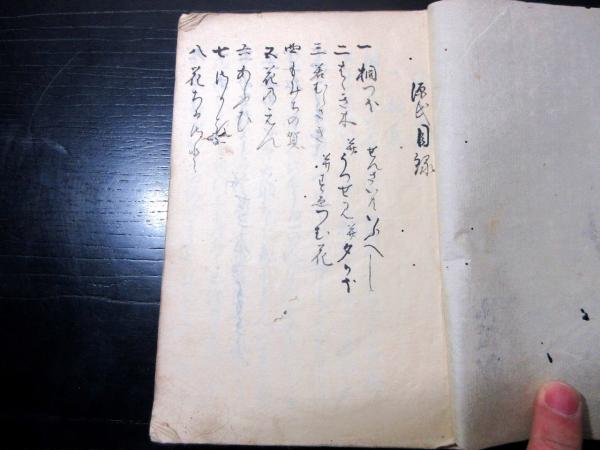 源氏目録
一 桐つほ せんさいハいふへし
二 はゝき木 并うつせみ 并夕かほ
三 若むらさき 并すゑつむ花
四 もみちの賀
五 花のえん
六 あふひ
七 さか木
八 花ちる里